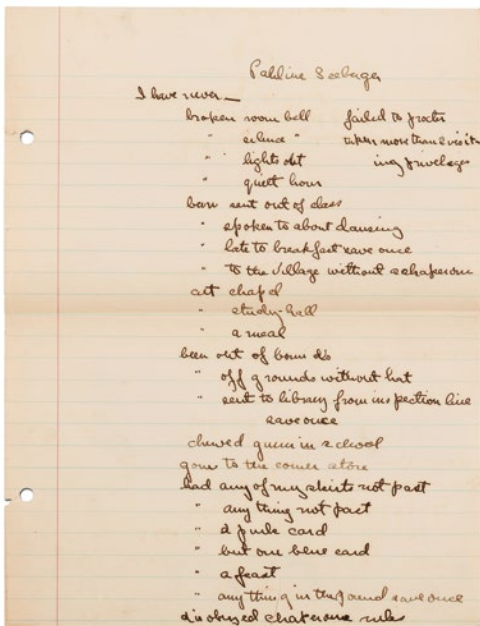 Pauline Seeberger
I have never—
broken room bell failed to procter
" silence " taken more than 2 visit
" lights out ing privileges
" quiet hour
been sent out of class
" spoken to about dancing
" late to breakfast save once
" to the village without a chaperone
cut chapel
" study-hall
" a meal
been out of bounds
" off grounds without hat
" sent to library from inspection line
save once
chewed gum in school
gone to the corner store
had any of my skirts not past
" any thing not past
" a pink card
" but one blue card
" a feast
" any thing in the pound save once
disobeyed chaperone rules